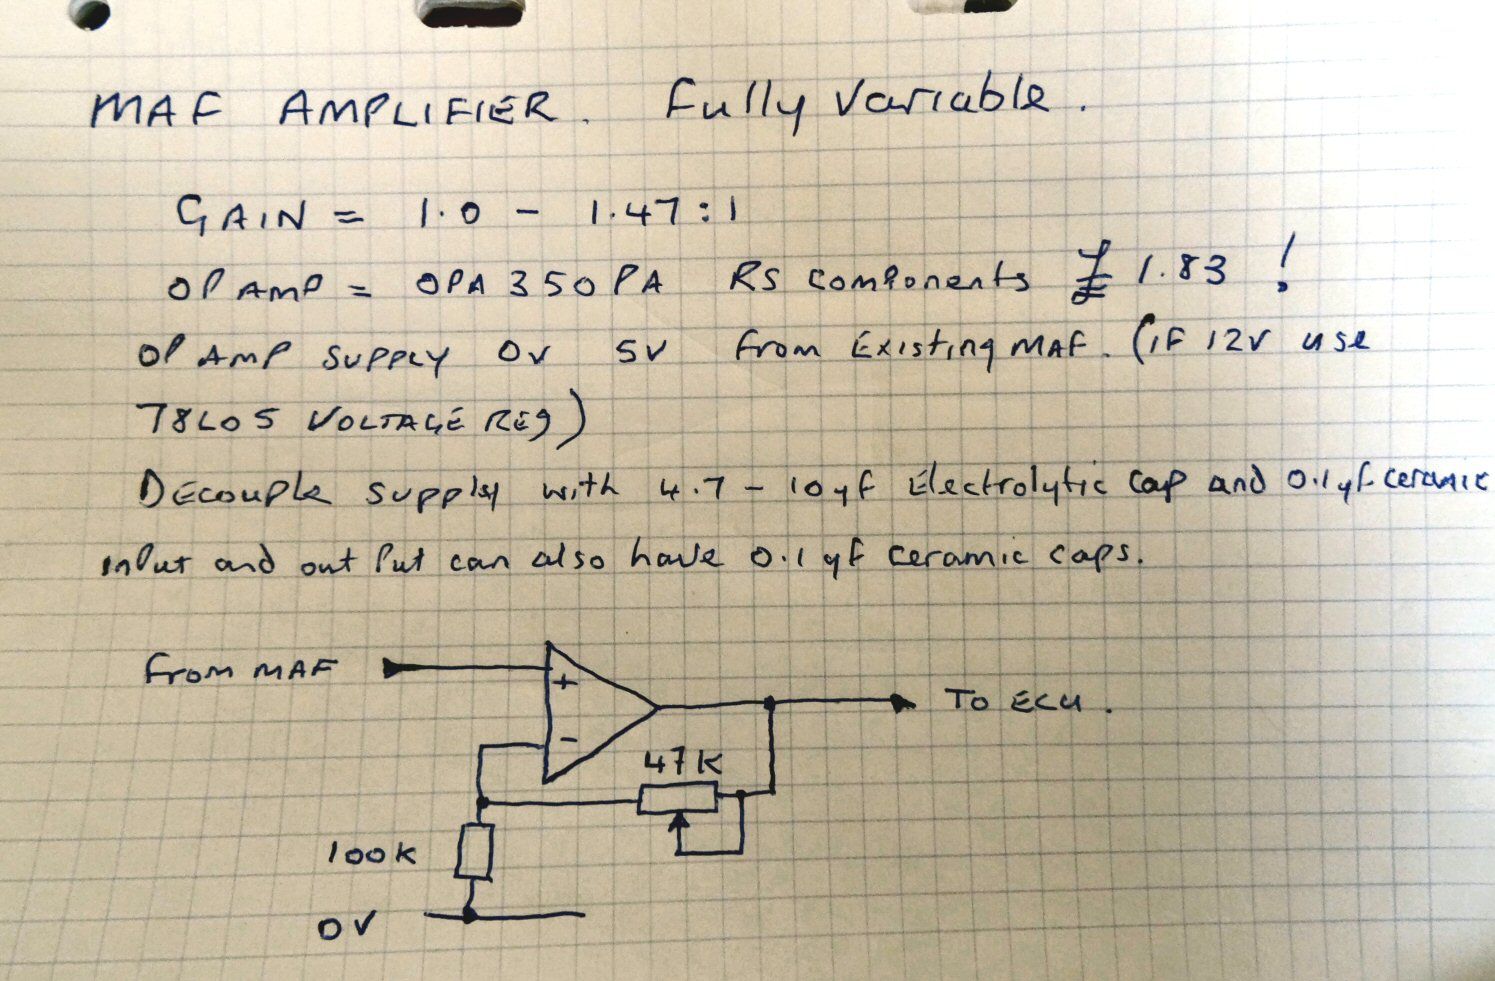 MAF AMPLIFIER. Fully Variable.
GAIN = 1.0 - 1.47:1
OP AMP = OPA 350 PA RS Components £ 1.83 !
OP AMP SUPPLY 0V 5V from Existing MAF. (IF 12V use
78L05 VOLTAGE REG)
DECouple supply with 4.7 - 10µf Electrolytic cap and 0.1µf ceramic
input and out Put can also have 0.1µf ceramic caps.
from MAF
+
TO ECU.
-
47K
100K
0V